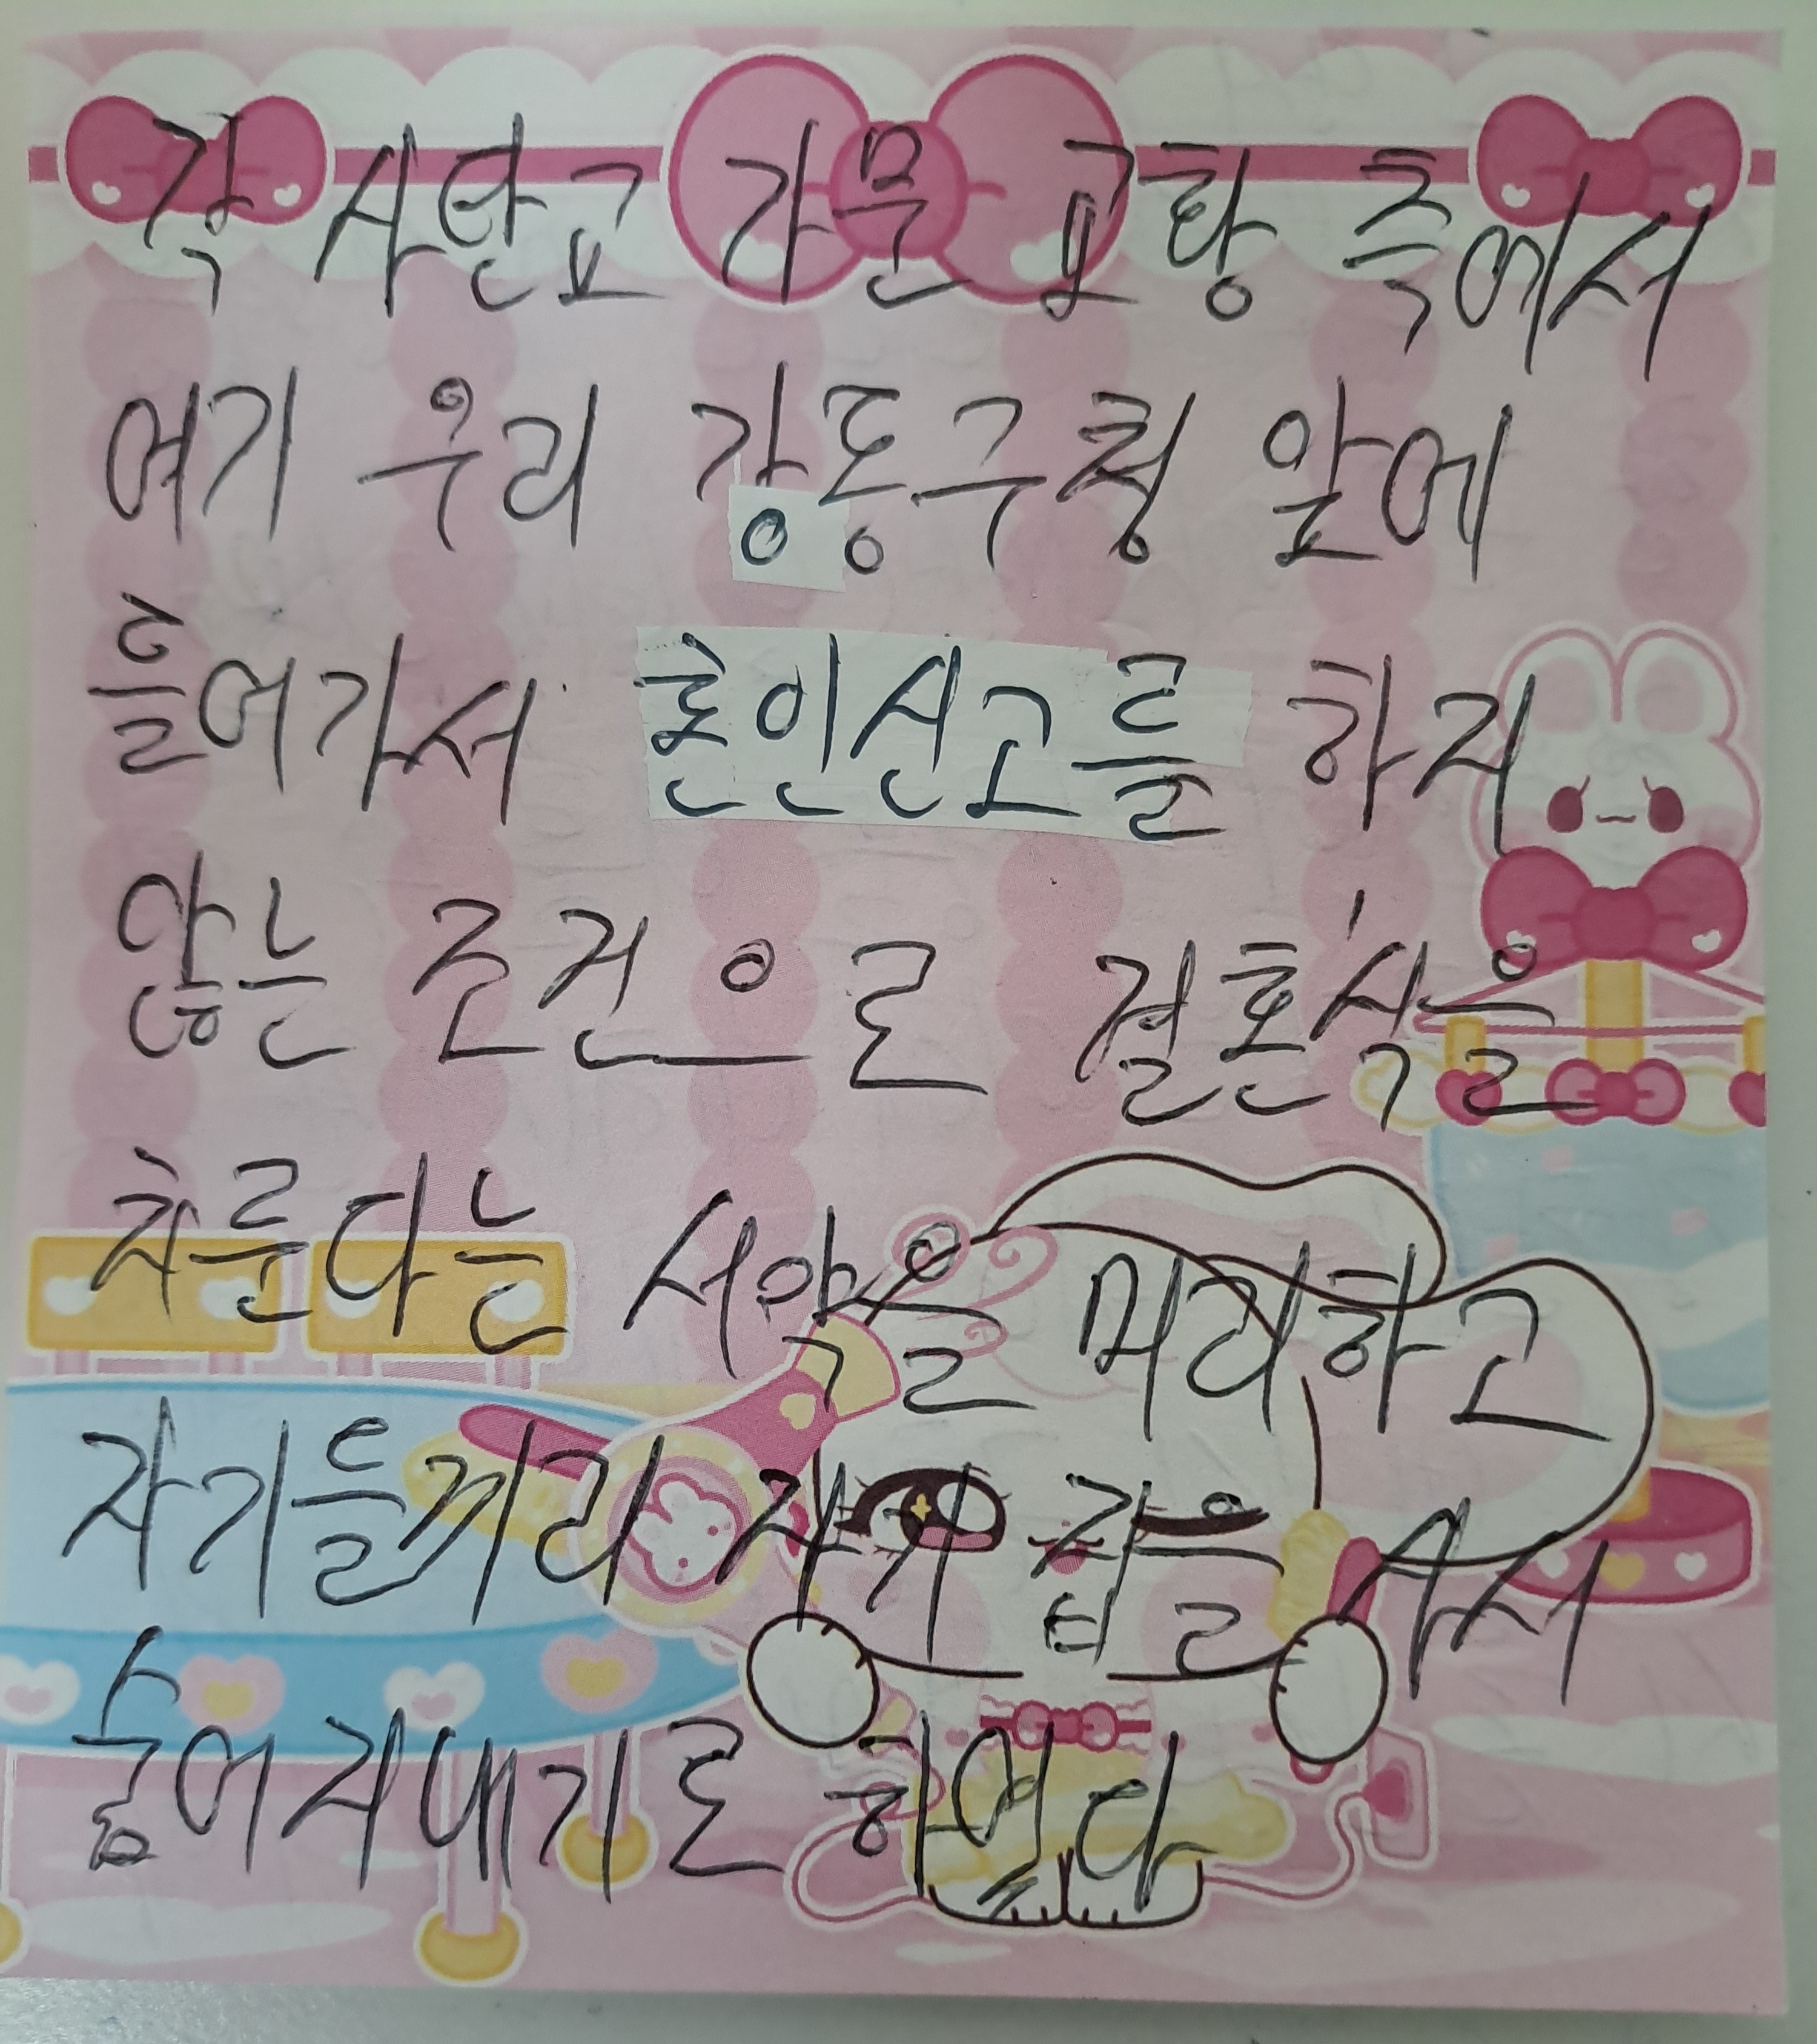 각 사탄교 가문 고향 측에서
여기 우리 강동구청 앞에
들어가서 혼인신고를 하지
않는 조건으로 결혼식을
치룬다는 서약을 머리하고
자기들끼리 자기 집을 사서
숨어지내기로 하였다